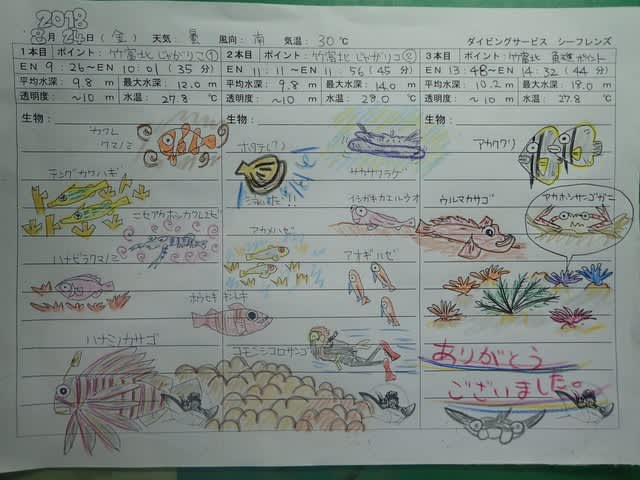 2018
8月24日(金) 天気: 曇 風向: 南 気温: 30℃ ダイビングサービス シーフレンズ
1本目 ポイント: 竹富北 じゃがりこ①
EN 9:26〜EN 10:01 (35分)
平均水深: 9.8 m 最大水深: 12.0 m
透明度: 〜10 m 水温: 27.8 ℃
生物:
カクレクマノミ
テングカワハギ
ニセアカホシカクレエビ
ハナビラクマノミ
ハナミノカサゴ
2本目 ポイント: 竹富北 じゃがリコ②
EN 11:11〜EN 11:56 (45分)
平均水深: 9.8 m 最大水深: 14.0 m
透明度: 〜10 m 水温: 28.0 ℃
生物:
ホタテ(?)
泳いだ!!
サカサクラゲ
イシガキカエルウオ
アカメハゼ
アオギハゼ
ホウセキキントキ
コモンシコロサンゴ
3本目 ポイント: 竹富北
EN 13:48〜EN 14:32 (44分)
平均水深: 10.2 m 最大水深: 18.0 m
透明度: 〜10 m 水温: 27.8 ℃
生物:
ウルマカサゴ
アカホシサンゴガニ
ありがとう
ございました。